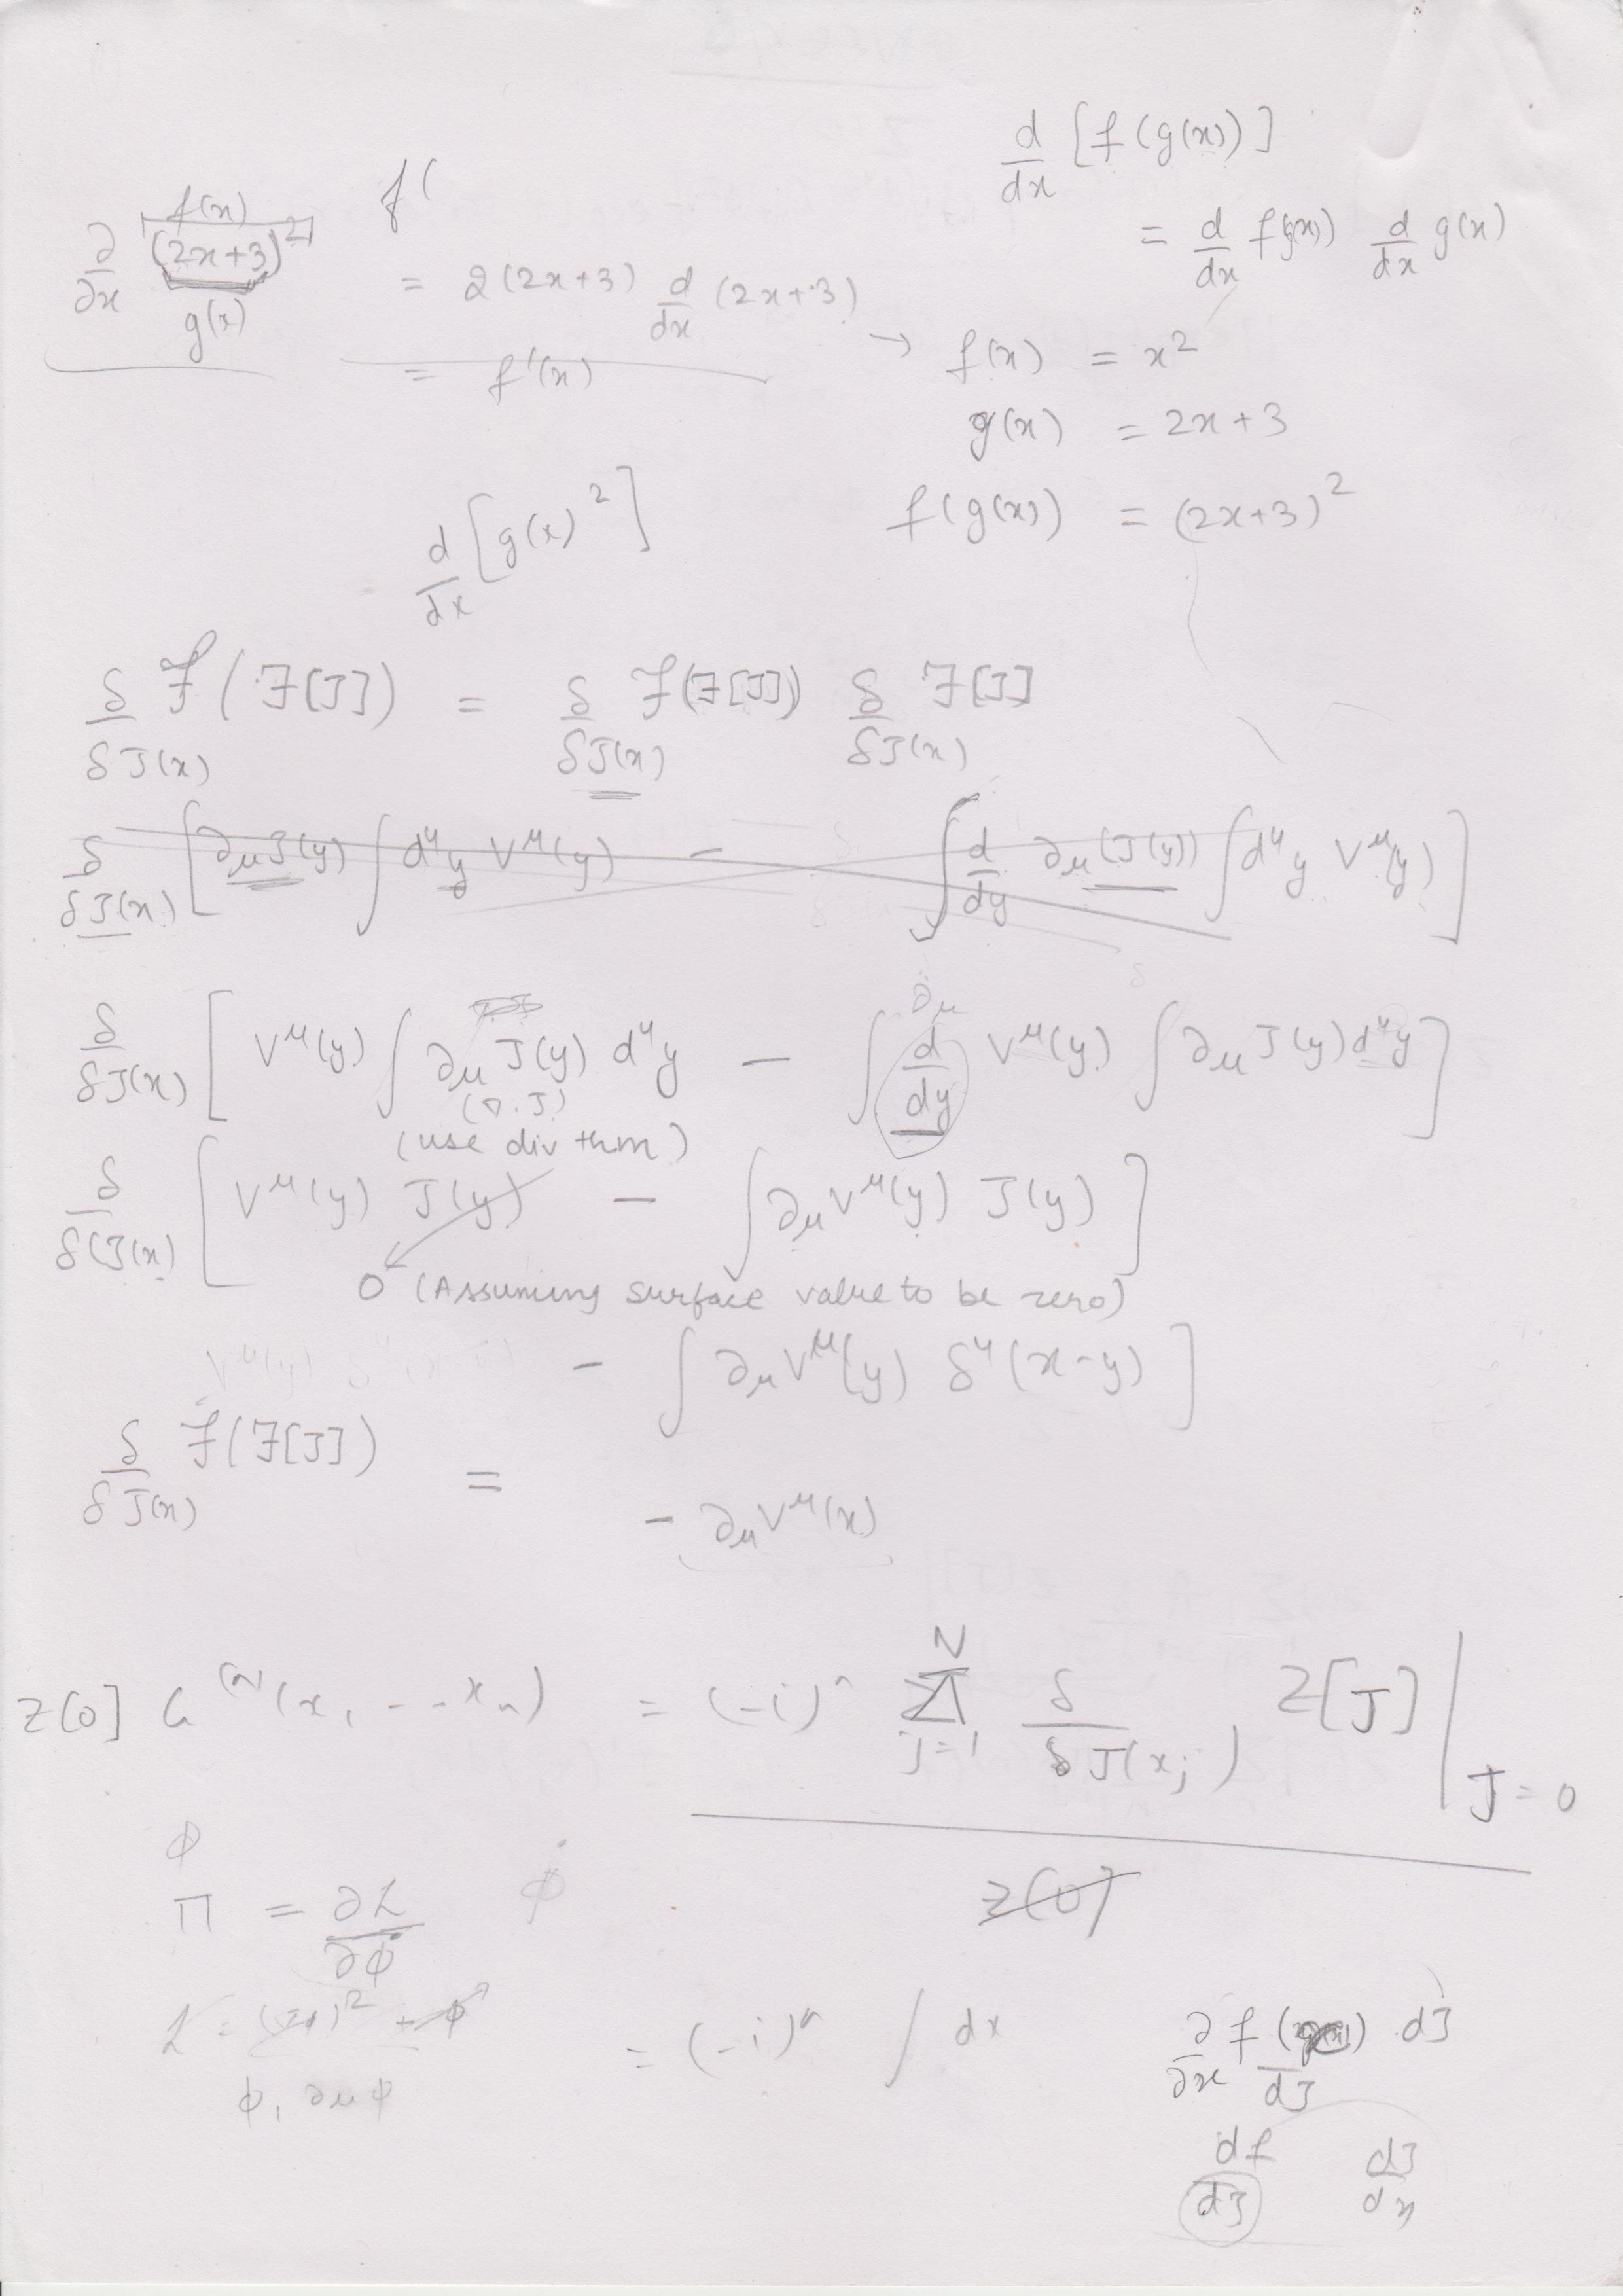 d/dx [f(g(x))]
= d/dx f(g(x)) d/dx g(x)
f(x)
∂/∂x (2x+3)²
g(x)
f(
= 2(2x+3) d/dx (2x+3)
= f'(x)
→ f(x) = x²
g(x) = 2x+3
f(g(x)) = (2x+3)²
d/dx [g(x)²]
δ/δJ(x) f(F[J]) = δ/δJ(x) f(F[J]) δ/δJ(x) F[J]
δ/δJ(x) [∂μJ(y) ∫d⁴y V^μ(y) − ∫ d/dy ∂μ(J(y)) ∫d⁴y V^μ(y)]
∂μ
δ/δJ(x) [V^μ(y) ∫∂μ J(y) d⁴y − ∫ d/dy V^μ(y) ∫∂μJ(y)d⁴y]
(∇.J)
(use div thm)
δ/δ(J(x) [V^μ(y) J(y) − ∫∂μV^μ(y) J(y)]
0 (Assuming surface value to be zero)
− ∫∂μV^μ(y) δ⁴(x-y)]
δ/δJ(x) f(F[J]) =
− ∂μV^μ(x)
Z[0] G^(n)(x₁ --- xₙ) = (-i)ⁿ N j=1 δ/δJ(xj) Z[J] | J=0
Z(0)
ϕ
Π = ∂L/∂ϕ̇ ϕ̇
ϕ, ∂μϕ
= (-i)ⁿ ∫ dx
∂/∂x f dJ
dJ
df/dJ dJ/dx